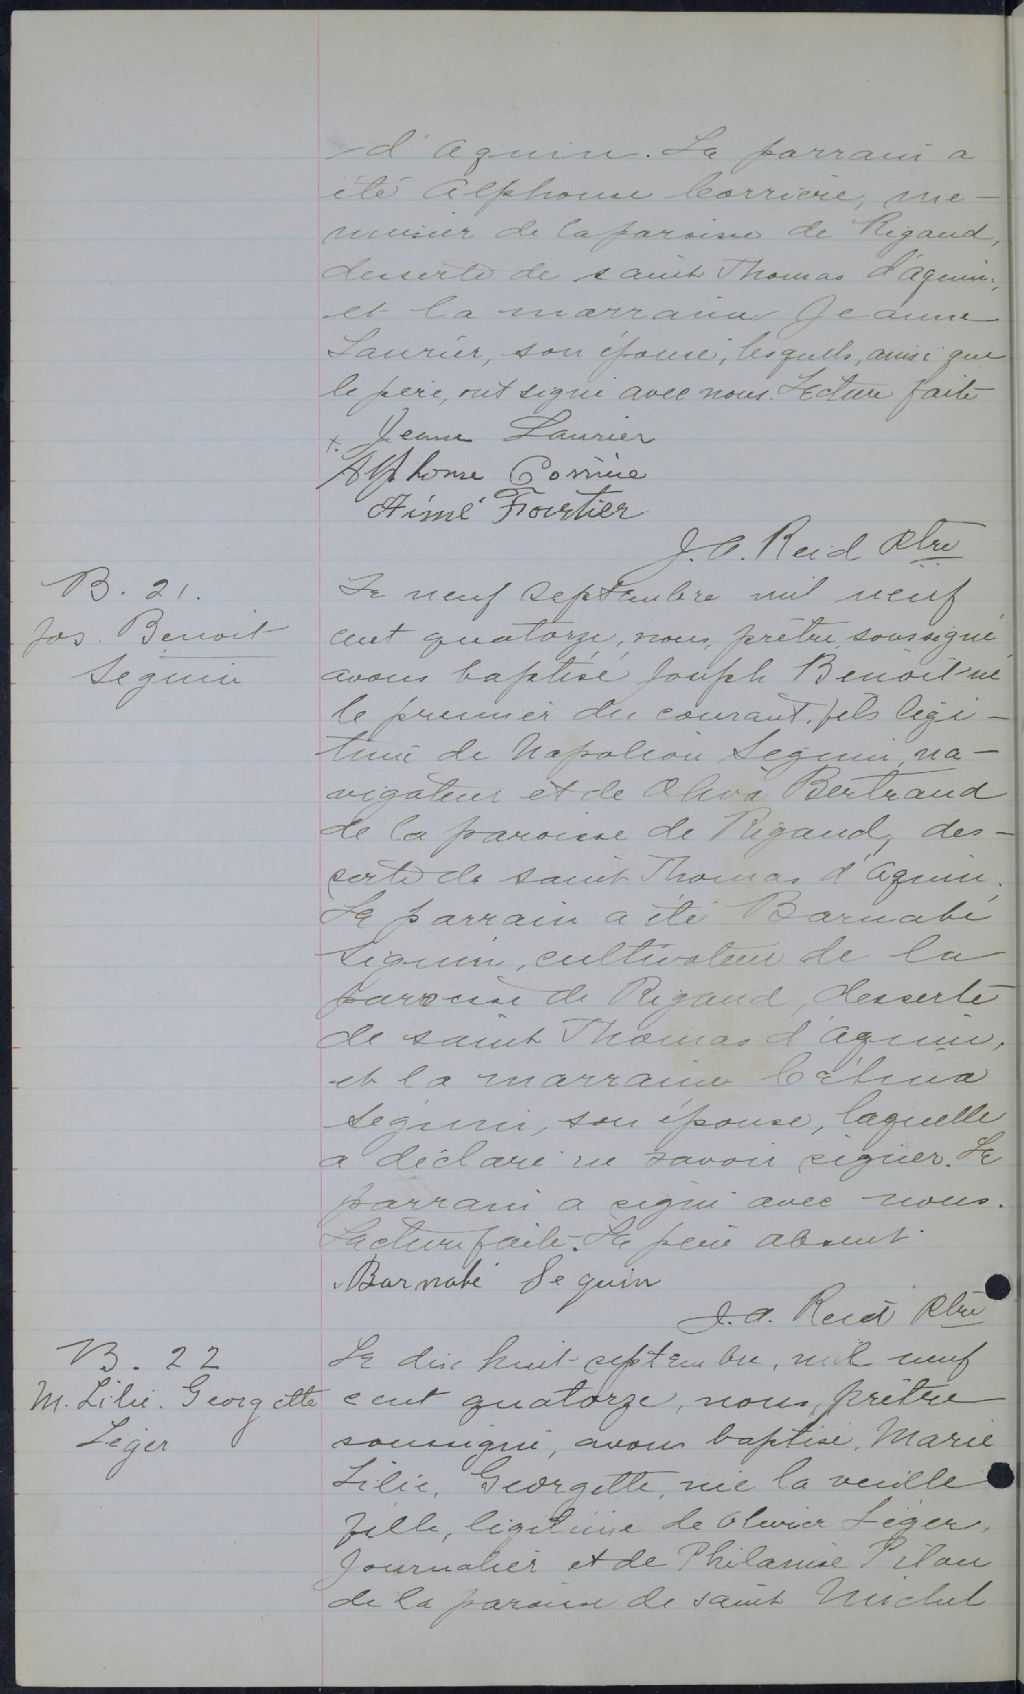 d'Aquin. Le parrain a
été Alphonse Carrière, me-
nuisier de la paroisse de Rigaud,
desserte de saint Thomas d'Aquin,
et la marraine Jeanne
Laurier, son épouse, lesquels, ainsi que
le père, ont signé avec nous. Lecture faite
x. Jeanne Laurier
Alphonse Carrière
Aimé Fourtier
J. A. Reid Ptre
B. 21.
Jos. Benoit
Seguin
Le neuf septembre mil neuf
cent quatorze, nous, prêtre soussigné
avons baptisé Joseph Benoit né
le premier du courant, fils légi-
time de Napoléon Seguin, na-
vigateur et de Oliva Bertrand
de la paroisse de Rigaud, des-
serte de saint Thomas d'Aquin.
Le parrain a été Barnabé
Seguin, cultivateur de la
paroisse de Rigaud, desserte
de saint Thomas d'Aquin,
et la marraine
Seguin, son épouse, laquelle
a déclaré ne savoir signer. Le
parrain a signé avec nous.
Lecture faite. Le père absent.
Barnabé Seguin
J. A. Reid Ptre
B. 22
M. Lilie. Georgette
Léger
Le dix huit septembre, mil neuf
cent quatorze, nous, prêtre
soussigné, avons baptisé, Marie
Lilie, Georgette, née la veille
fille, légitime de Olivier Léger,
Journalier et de Philanise Pilon
de la paroisse de saint Michel